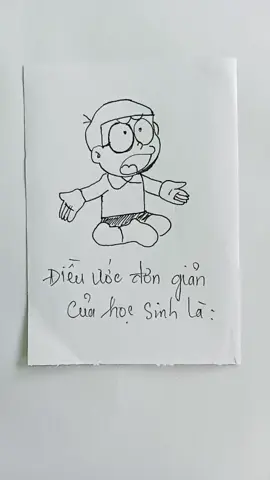 Điều ước đơn giản
của học sinh là: